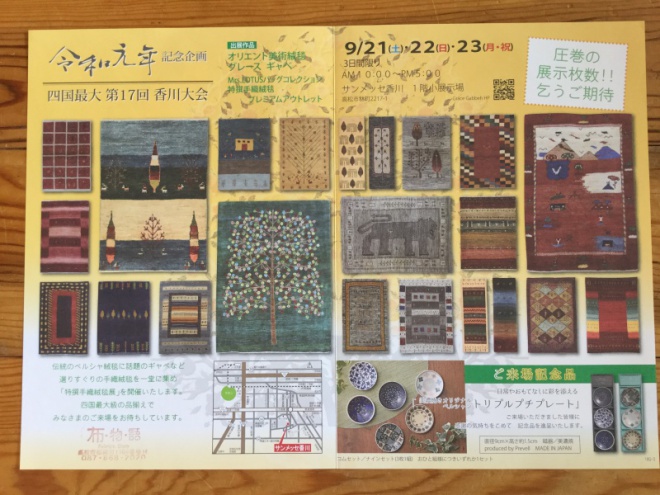 令和元年 記念企画
四国最大 第17回 香川大会
出展作品
オリエント美術絨毯
グレース ギャベ
特撰手織絨毯
プレミアムアウトレット
9/21(土)・22(日)・23(月・祝)
3日間限り
AM10:00～PM5:00
サンメッセ香川 1階小展示場
圧巻の
展示枚数!!
乞うご期待
伝統のペルシャ絨毯に話題のギャベなど
選りすぐりの手織絨毯を一堂に集め
「特撰手織絨毯展」を開催いたします。
四国最大級の品揃えで
みなさまのご来場をお待ちしています。
サンメッセ香川
ご来場記念品
トリプルプチプレート
ご来場いただきました皆様に
記念品を進呈いたします。
produced by Prevell MADE IN JAPAN